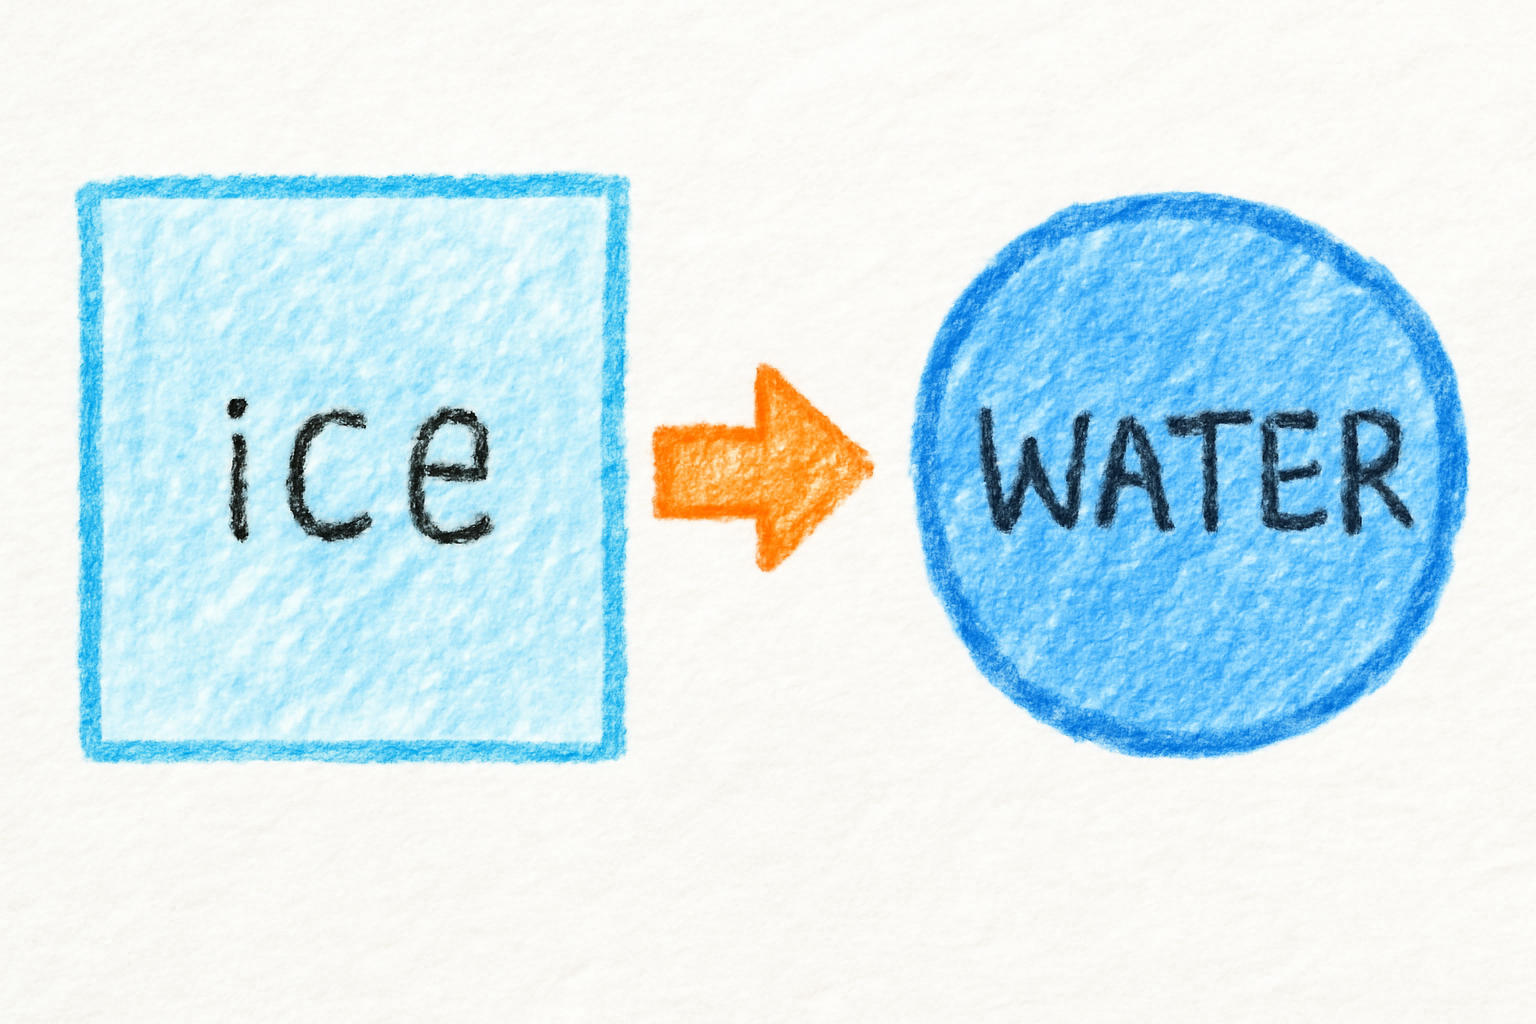 ice
WATER